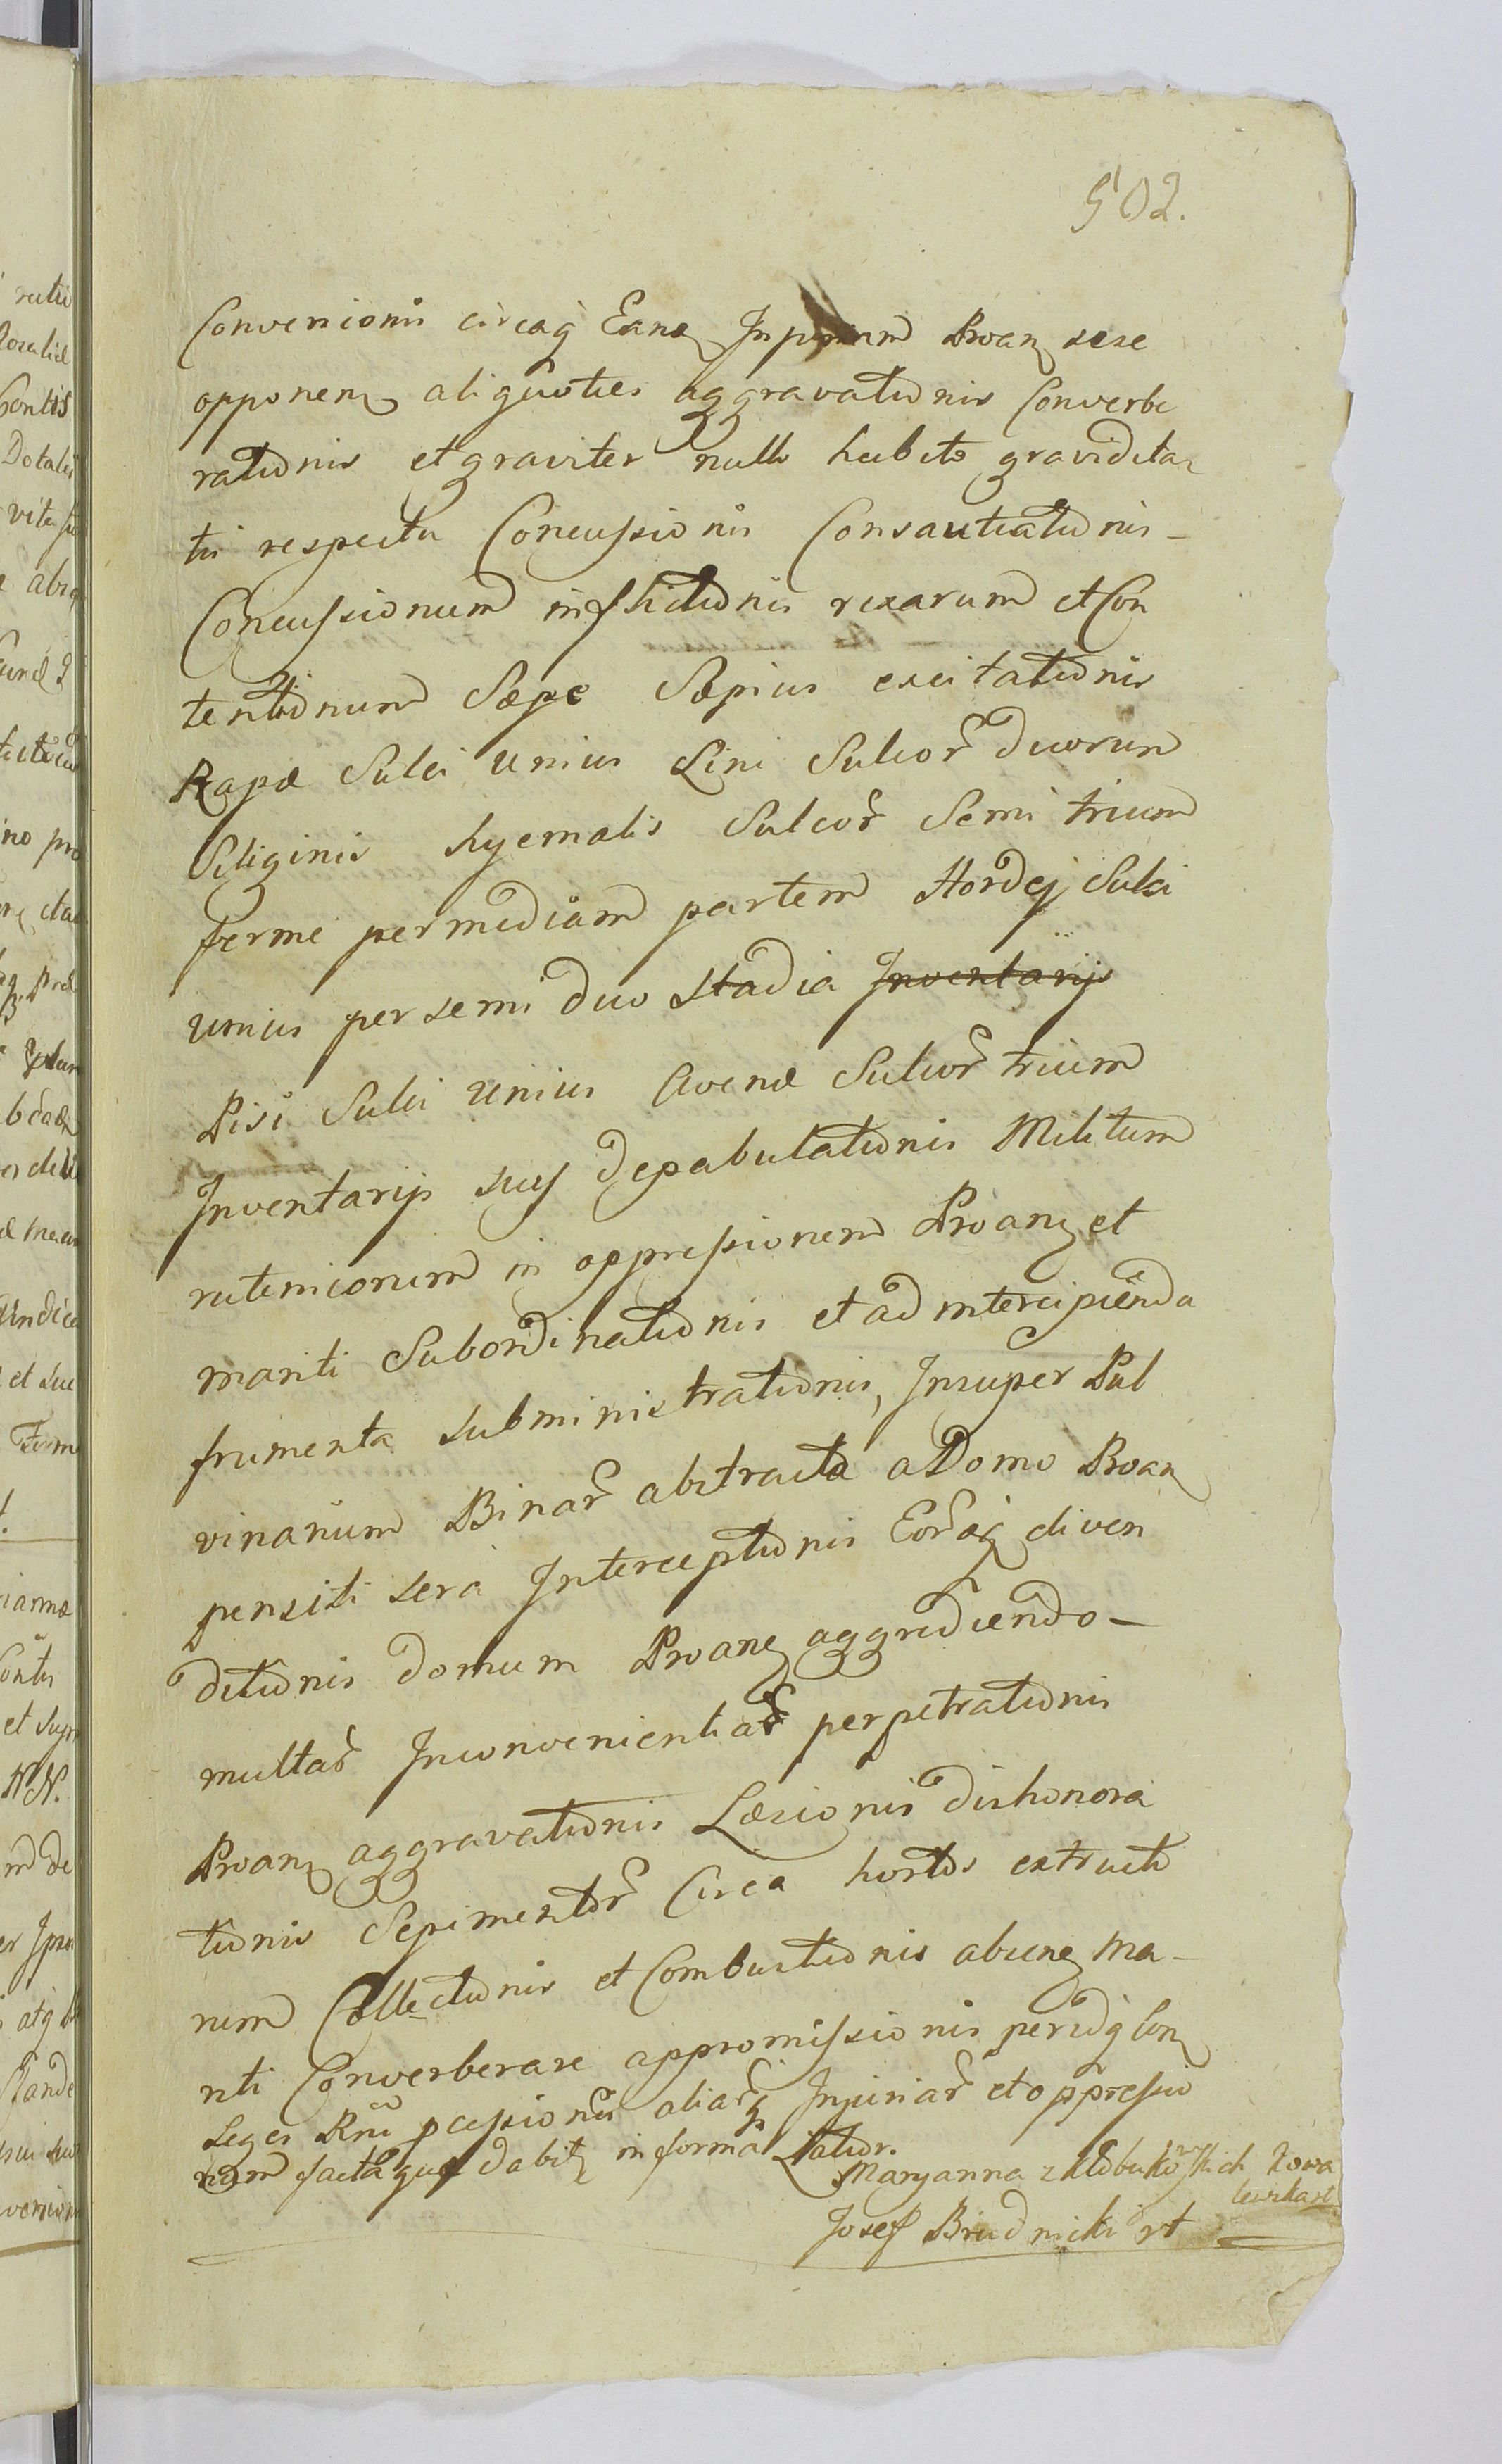 502.
Conversionis circaq Eand Proan sese
opponen aliquoties aggravationis Converbe
rationis et graviter nullo habito gravidita
tis respectu Concussionis Consautiationis
Concussionum inflictionis rixarum et Con
tentionum Sæpe Sæpius excitationis
Rapæ Sulci unius Lini Sulcor duorum
Siliginis hyemalis Sulcor Semi trium
ferme per mediam partem Hordej Sulci
unius per semi duo stadia Inventarijs
Pisi Sulci unius Avenæ Sulcor trium
Inventarijs suis depabulationis Militum
rutenicorum in oppressionem Proan et
mariti Subordinationis et ad intercipienda
frumenta subministrationis, Insuper Pul
vinarium Binar abstracta a Domo Proan
pensili sera Interceptionis Eorq diven
ditionis domum Proane aggrediendo
multar Inconvenientiar perpetrationis
Proan aggravationis Læsionis dishonora
tionis Sepimentor Circa hortos extructo
rum Collectionis et Combustionis absene Ma
riti Converberare appromissionis peridq Con
Leges Rni pcessionis aliarq Injuriar et oppressio
num facta que dabit in forma Latior.
Maryanna z Kłobukowskich Kowa
lewska
Josef Brudnicki